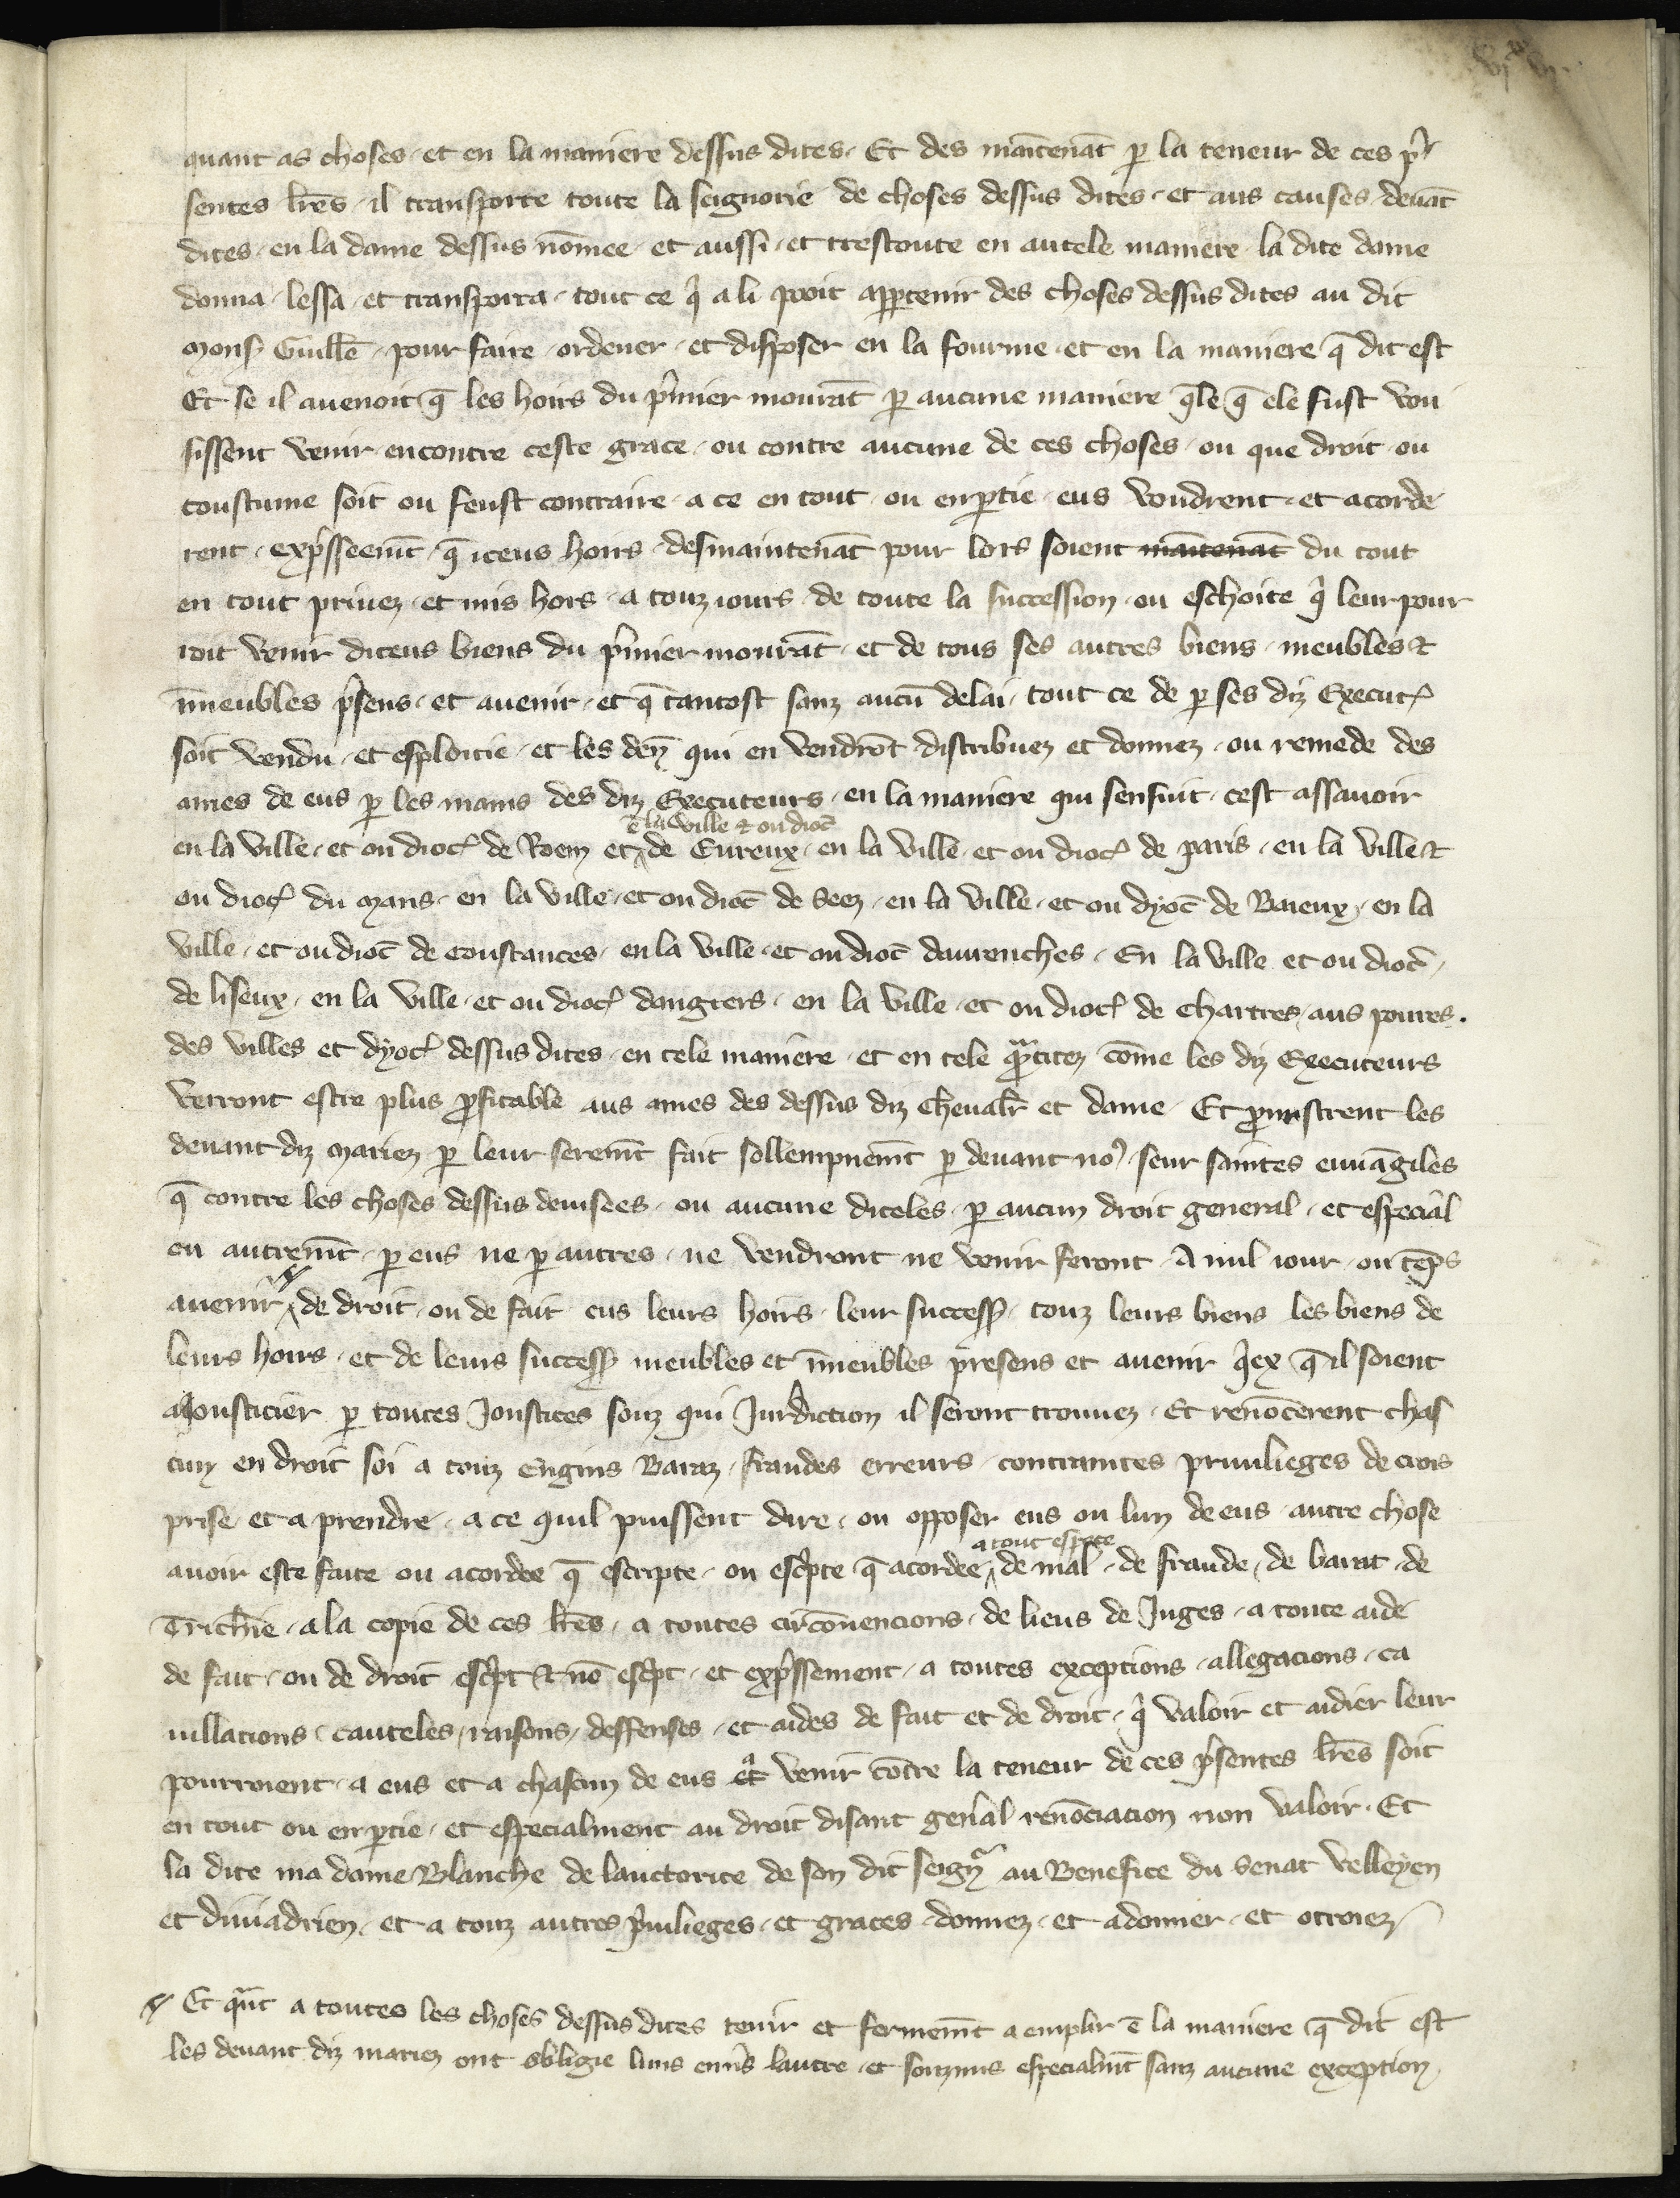 quant as choses et en la maniere dessus dites. Et des maītenāt p̱ la teneur de ces p̄
sentes lr̄es il transporte toute la seignorie de choses dessus dites et aus causes deuāt
dites en la dame dessus nōmee et aussi et trestoute en autele maniere la dite dame
donna lessa et transporta tout ce q̄ a li pooit appartenir des choses dessus dites au dit
Mons̄ Guill̄e pour faire ordener et disposer en la fourme et en la maniere q̄ dit est
Et se il auenoit q̄ les hoirs du p̄mier mourāt p̱ aucune maniere q̄le q̄ ele fust vou
sissent venir encontre ceste grace ou contre aucune de ces choses ou que droit ou
coustume soit ou feust contraire a ce en tout ou en p̱tie eus voudrent et acorde
rent exp̄sseemt̄ q̄ iceus hoirs desmaintenāt pour lors soient maītenāt du tout
en tout priuez et mis hors a touz iours de toute la succession ou eschoite q̄ leur pour
roit venir diceus biens du p̄mier mourāt et de tous ses autres biens meubles ⁊
īmeubles p̄sens et auenir et q̄ tantost sanz aucū delai tout ce de p̱ ses diz Execut̄
soit vendu et esploitie et les den̄ qui en vendrōt distribuez et donnez ou remede des
ames de eus p̱ les mains des diz Executeurs en la maniere qui sensuit cest assauoir
ē la ville ⁊ ou dioc̄
en la ville et ou dioc̄ de Roem et de Eureux en la ville et ou dioc̄ de paris en la ville ⁊
ou dioc̄ du Mans en la ville et ou dioc̄ de Seez en la ville et ou dyoc̄ de Baieux en la
ville et ou dioc̄ de Constances en la ville et ou dioc̄ daurenches En la ville et ou dioc̄
de liseux en la ville et ou dioc̄ dangiers en la ville et ou dioc̄ de Chartres aus poures.
des villes et dyoc̄ dessus dites en tele maniere et en tele q̄ntitez cōme les diz Executeurs
verront estre plus ꝓfitable aus ames des dessus diz cheualr̄ et dame Et ꝓmistrent les
deuant diz mariez p̱ leur seremt̄ fait sollempnemt̄ p̱ deuant nos̄ seur saintes euuāgiles
q̄ contre les choses dessus deuisees ou aucune diceles p̱ aucun droit general et especial
ou autremt̄ p̱ eus ne p̱ autres ne vendront ne venir feront A nul iour ou tēps
auenir de droit ou de fait eus leurs hoirs leur success̄ touz leurs biens les biens de
leurs hoirs et de leurs success̄ meubles et īmeubles presens et auenir q̄ex q̄ il soient
a Jousticier p̱ toutes Joustices souz qui Jurdiction il seront trouuez Et renōcerent chas
cun en droit soi a touz Engins Baraz fraudes erreurs contraintes priuilieges de crois
prise et a prendre a ce quil puissent dire ou opposer eus ou lun de eus autre chose
a tout espece
auoir este faite ou acordee q̄ escripte ou esc̄pte q̄ acordee de mal de fraude de barat de
Trich̄ie a la copie de ces lr̄es a toutes circōuencions de lieus de Juges a toute aide
de fait ou de droit esc̄pt ⁊ nō esc̄pt et exp̄ssement a toutes exceptions allegacions ca
uillacions cauteles raisons deffenses et aides de fait et de droit q̄ valoir et aidier leur
pourroient a eus et a chascun de eus et venir cōtre la teneur de ces p̄sentes lr̄es soit
en tout ou en p̱tie et especialment au droit disant gen̄al renōciacion non valoir Et
la dite ma dame Blanche de lauctorite de son dit seign̄ au Benefice du Senat velleyen
et diuiadrien et a touz autres p̄uilieges et graces donnez et a donner et otroiez

Et q̄nt a toutes les choses dessus dites tenir et fermemt̄ a emplir ē la maniere q̄ dit est
les deuant diz mariez ont obligie luns enūs lautre et souzmis especialmt̄ sanz aucune exception